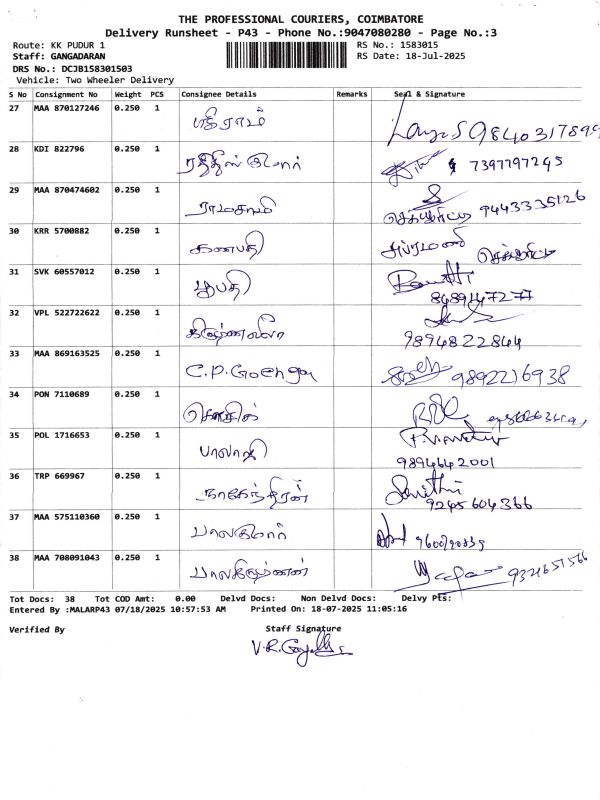 THE PROFESSIONAL COURIERS, COIMBATORE
Delivery Runsheet - P43 - Phone No.:9047080280 - Page No.:3
Route: KK PUDUR 1 RS No.: 1583015
Staff: GANGADARAN RS Date: 18-Jul-2025
DRS No.: DCJB158301503
Vehicle: Two Wheeler Delivery
S No Consignment No Weight PCS Consignee Details Remarks Seal & Signature
27 MAA 870127246 0.250 1
28 KDI 822796 0.250 1 7397797245
29 MAA 870474602 0.250 1 ராமசாமி 9443335126
30 KRR 5700882 0.250 1 கணபதி
31 SVK 60557012 0.250 1 பூபதி 8489147277
32 VPL 522722622 0.250 1 9894822844
33 MAA 869163525 0.250 1 C.P.Goenga 9892216938
34 PON 7110689 0.250 1
35 POL 1716653 0.250 1 பாலாஜி 9894642001
36 TRP 669967 0.250 1 நாகேந்திரன் 9245604366
37 MAA 575110360 0.250 1 பாலகுமார்
38 MAA 708091043 0.250 1 பாலகிருஷ்ணன்
Tot Docs: 38 Tot COD Amt: 0.00 Delvd Docs: Non Delvd Docs: Delvy Pts:
Entered By :MALARP43 07/18/2025 10:57:53 AM Printed On: 18-07-2025 11:05:16
Verified By Staff Signature